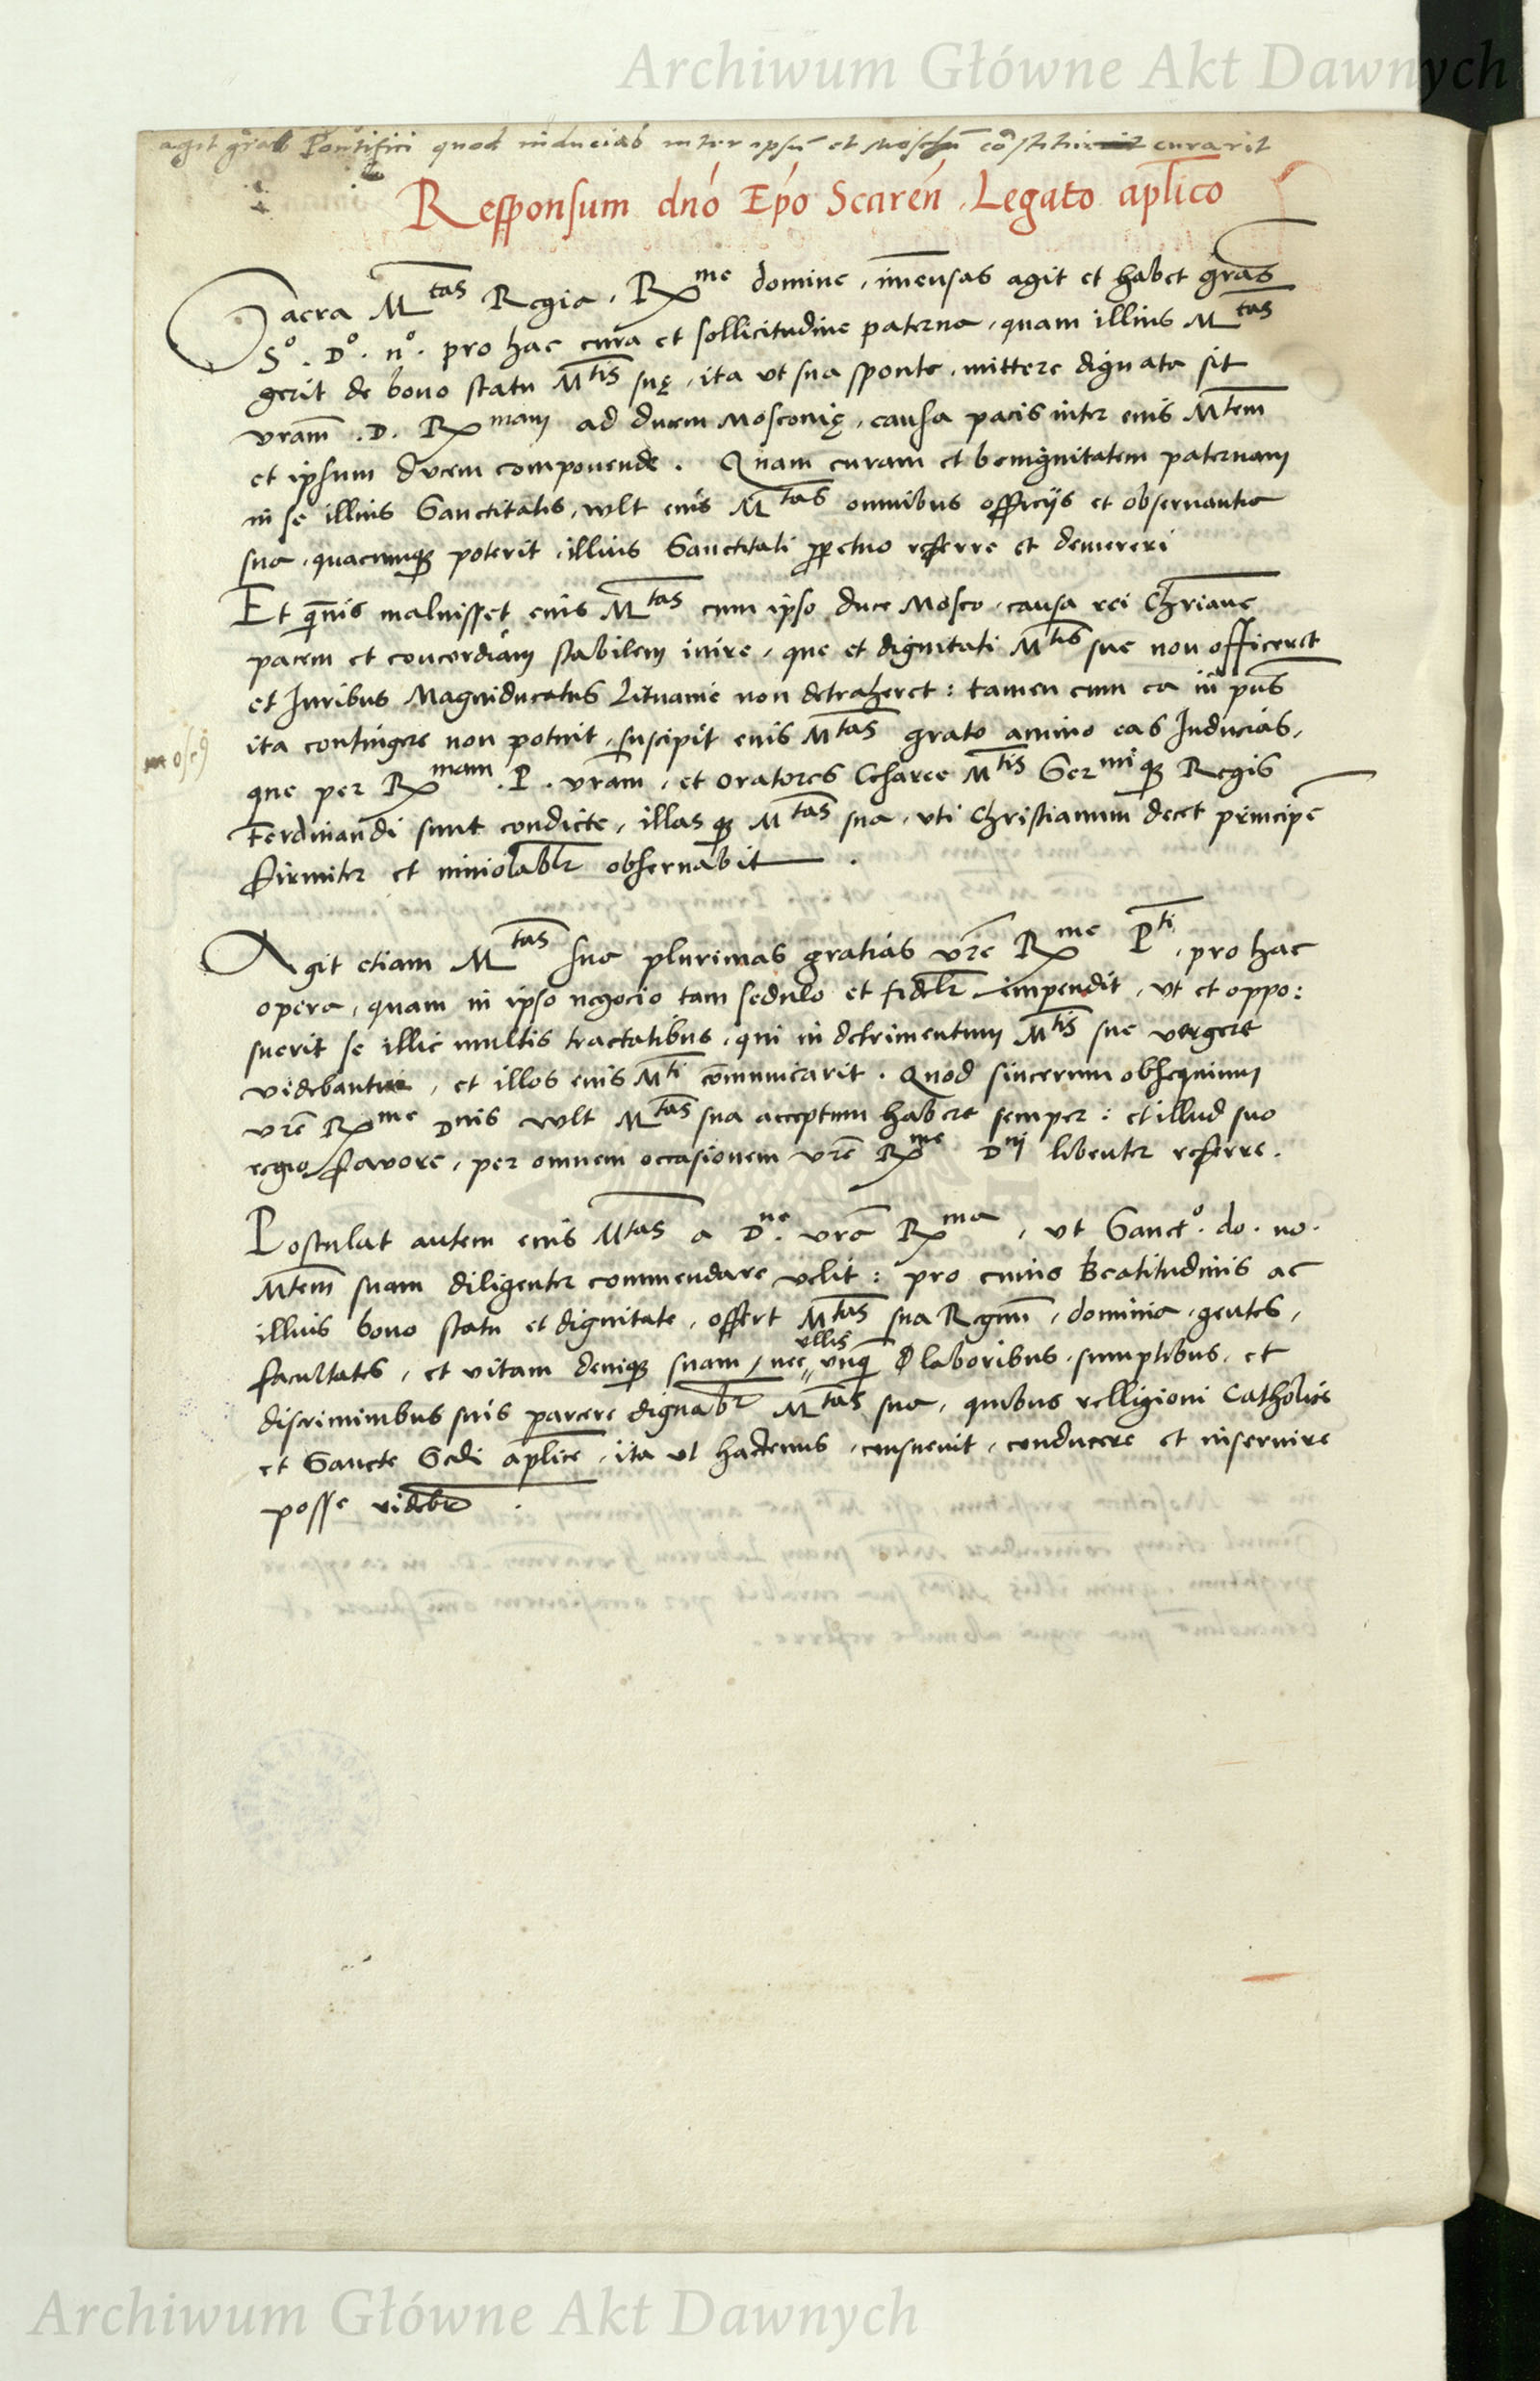 Archiwum Główne Akt Dawnych
agit gr̃as Pontifici quod inducias inter ipsũ et Moschũ cõstitui curarit
Responsum dnó Epó Scareń. Legato ap̃lico
Sacra M^tas Regia. Rx^me domine, im̃ensas agit et habet gr̃as
S^o. D^o. n^o. pro hac cura et sollicitudine paterna, quam illius M^tas
gerit de bono statu M^tis suę, ita vt sua sponte, mittere dignata sit
vram̃ .D. Rx^mam ad ducem Moscouię, causa pacis inter eius M^tem
et ipsum ducem componende. Quam curam et benignitatem paternam
in se illius Sanctitatis, wlt eius M^tas omnibus officijs et obseruantia
sua, quacunqȝ poterit, illius Sanctitati ꝑpetuo referre et demereri
Et q̃uis maluisset eius M^tas cum ipso duce Mosco, causa rei Chr̃iane
pacem et concordiam stabilem inire, que et dignitati M^tis sue non officeret
et Iuribus Magniducatus Lituanie non detraheret: tamen cum ea in pñs
ita contingere non potuit, suscipit eius M^tas grato animo eas Inducias,
moscʒ
que per Rx^mam .P. vram̃, et oratores Cesaree M^tis Ser^mi qȝ Regis
Ferdinandi sunt condicte, illas qȝ M^tas sua, vti Christianum decet principẽ
firmiter et inuiolabl̃r obseruabit.
Agit etiam M^tas sua plurimas gratias vr̃e Rx^me P^ti, pro hac
opera, quam in ipso negocio tam sedulo et fidel̃r impendit, vt et oppo:
suerit se illic multis tractatibus, qui in detrimentum M^tis sue vergere
videbantur, et illos eius M^ti cõmunicarit. Quod sincerum obsequium
vr̃e Rx^me Dnis wlt M^tas sua acceptum habere semper: et illud suo
regio fauore, per omnem occasionem vr̃e Rx^me D^nj libenter referre.
Postulat autem eius M^tas a D^ne. vrã Rx^ma, vt Sanct^o. do. no.
M^tem suam diligenter commendare velit: pro cuius Beatitudinis ac
illius bono statu et dignitate, offert M^tas sua Regnũ, dominia, gentes,
facultates, et vitam deniqȝ suam, nec ullis vnq̃ laboribus, sumptibus, et
discriminibus suis parcere dignabr̃ M^tas sua, quibus relligioni Catholice
et Sancte Sedi ap̃lice, ita vt hactenus, consueuit, conducere et inseruire
posse videbr̃.
Archiwum Główne Akt Dawnych